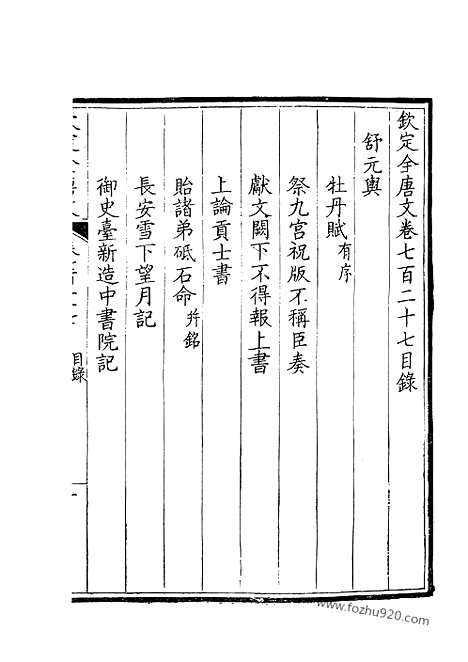 欽定全唐文卷七百二十七目錄
舒元輿
牡丹賦有序
祭九宮祝版不稱臣奏
獻文闕下不得報上書
上論貢士書
貽諸弟砥石命并銘
長安雪下望月記
御史臺新造中書院記
目錄
www.fozhu920.com